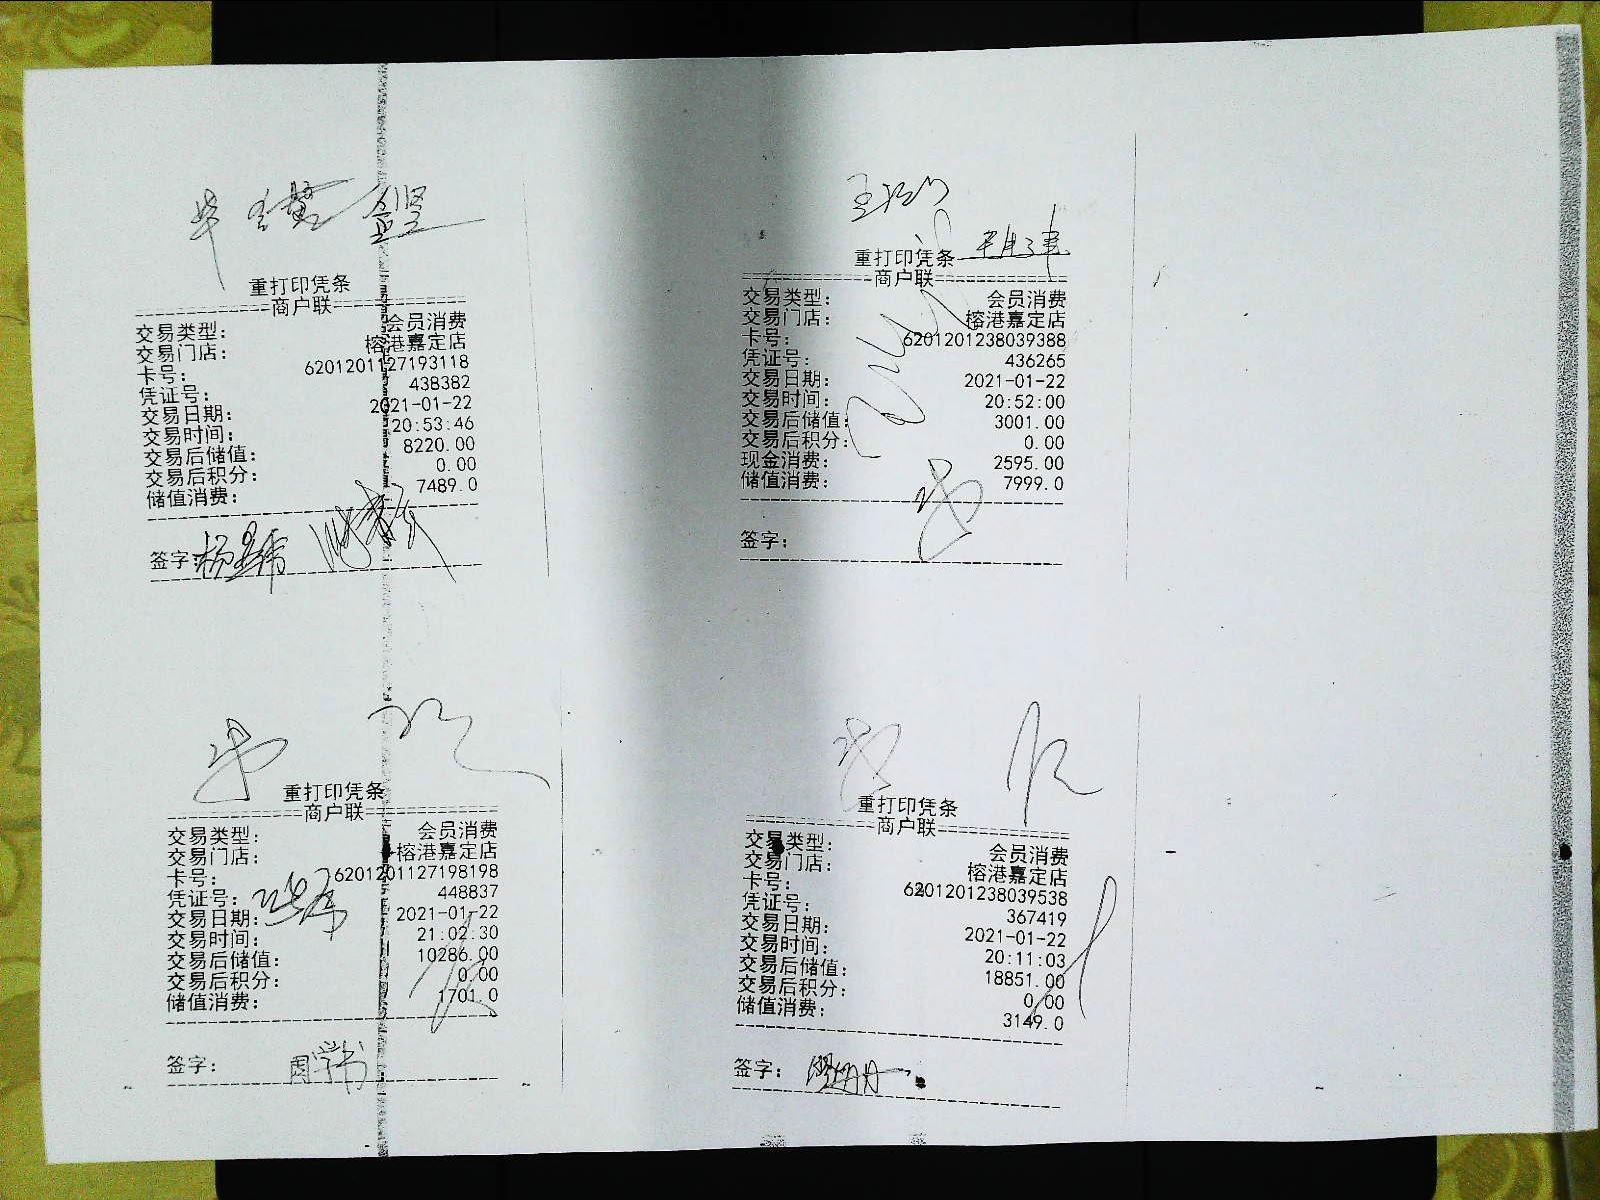 重打印凭条
商户联
交易类型： 会员消费
交易门店： 榕港嘉定店
卡号： 6201201127193118
凭证号： 438382
交易日期： 2021-01-22
交易时间： 20:53:46
交易后储值： 8220.00
交易后积分： 0.00
储值消费： 7489.0
签字：
重打印凭条
商户联
交易类型： 会员消费
交易门店： 榕港嘉定店
卡号： 6201201238039388
凭证号： 436265
交易日期： 2021-01-22
交易时间： 20:52:00
交易后储值： 3001.00
交易后积分： 0.00
现金消费： 2595.00
储值消费： 7999.0
签字：
重打印凭条
商户联
交易类型： 会员消费
交易门店： 榕港嘉定店
卡号： 6201201127198198
凭证号： 448837
交易日期： 2021-01-22
交易时间： 21:02:30
交易后储值： 10286.00
交易后积分： 0.00
储值消费： 1701.0
签字： 周学书
重打印凭条
商户联
交易类型： 会员消费
交易门店： 榕港嘉定店
卡号： 6201201238039538
凭证号： 367419
交易日期： 2021-01-22
交易时间： 20:11:03
交易后储值： 18851.00
交易后积分： 0.00
储值消费： 3149.0
签字：